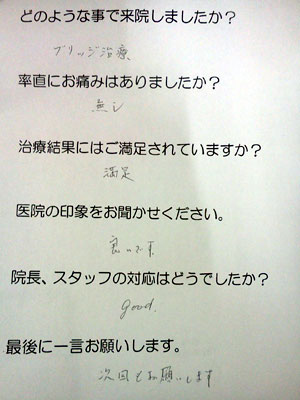 どのような事で来院しましたか？
ブリッジ治療
率直にお痛みはありましたか？
無し
治療結果にはご満足されていますか？
満足
医院の印象をお聞かせください。
良いです
院長、スタッフの対応はどうでしたか？
good.
最後に一言お願いします。
次回もお願いします